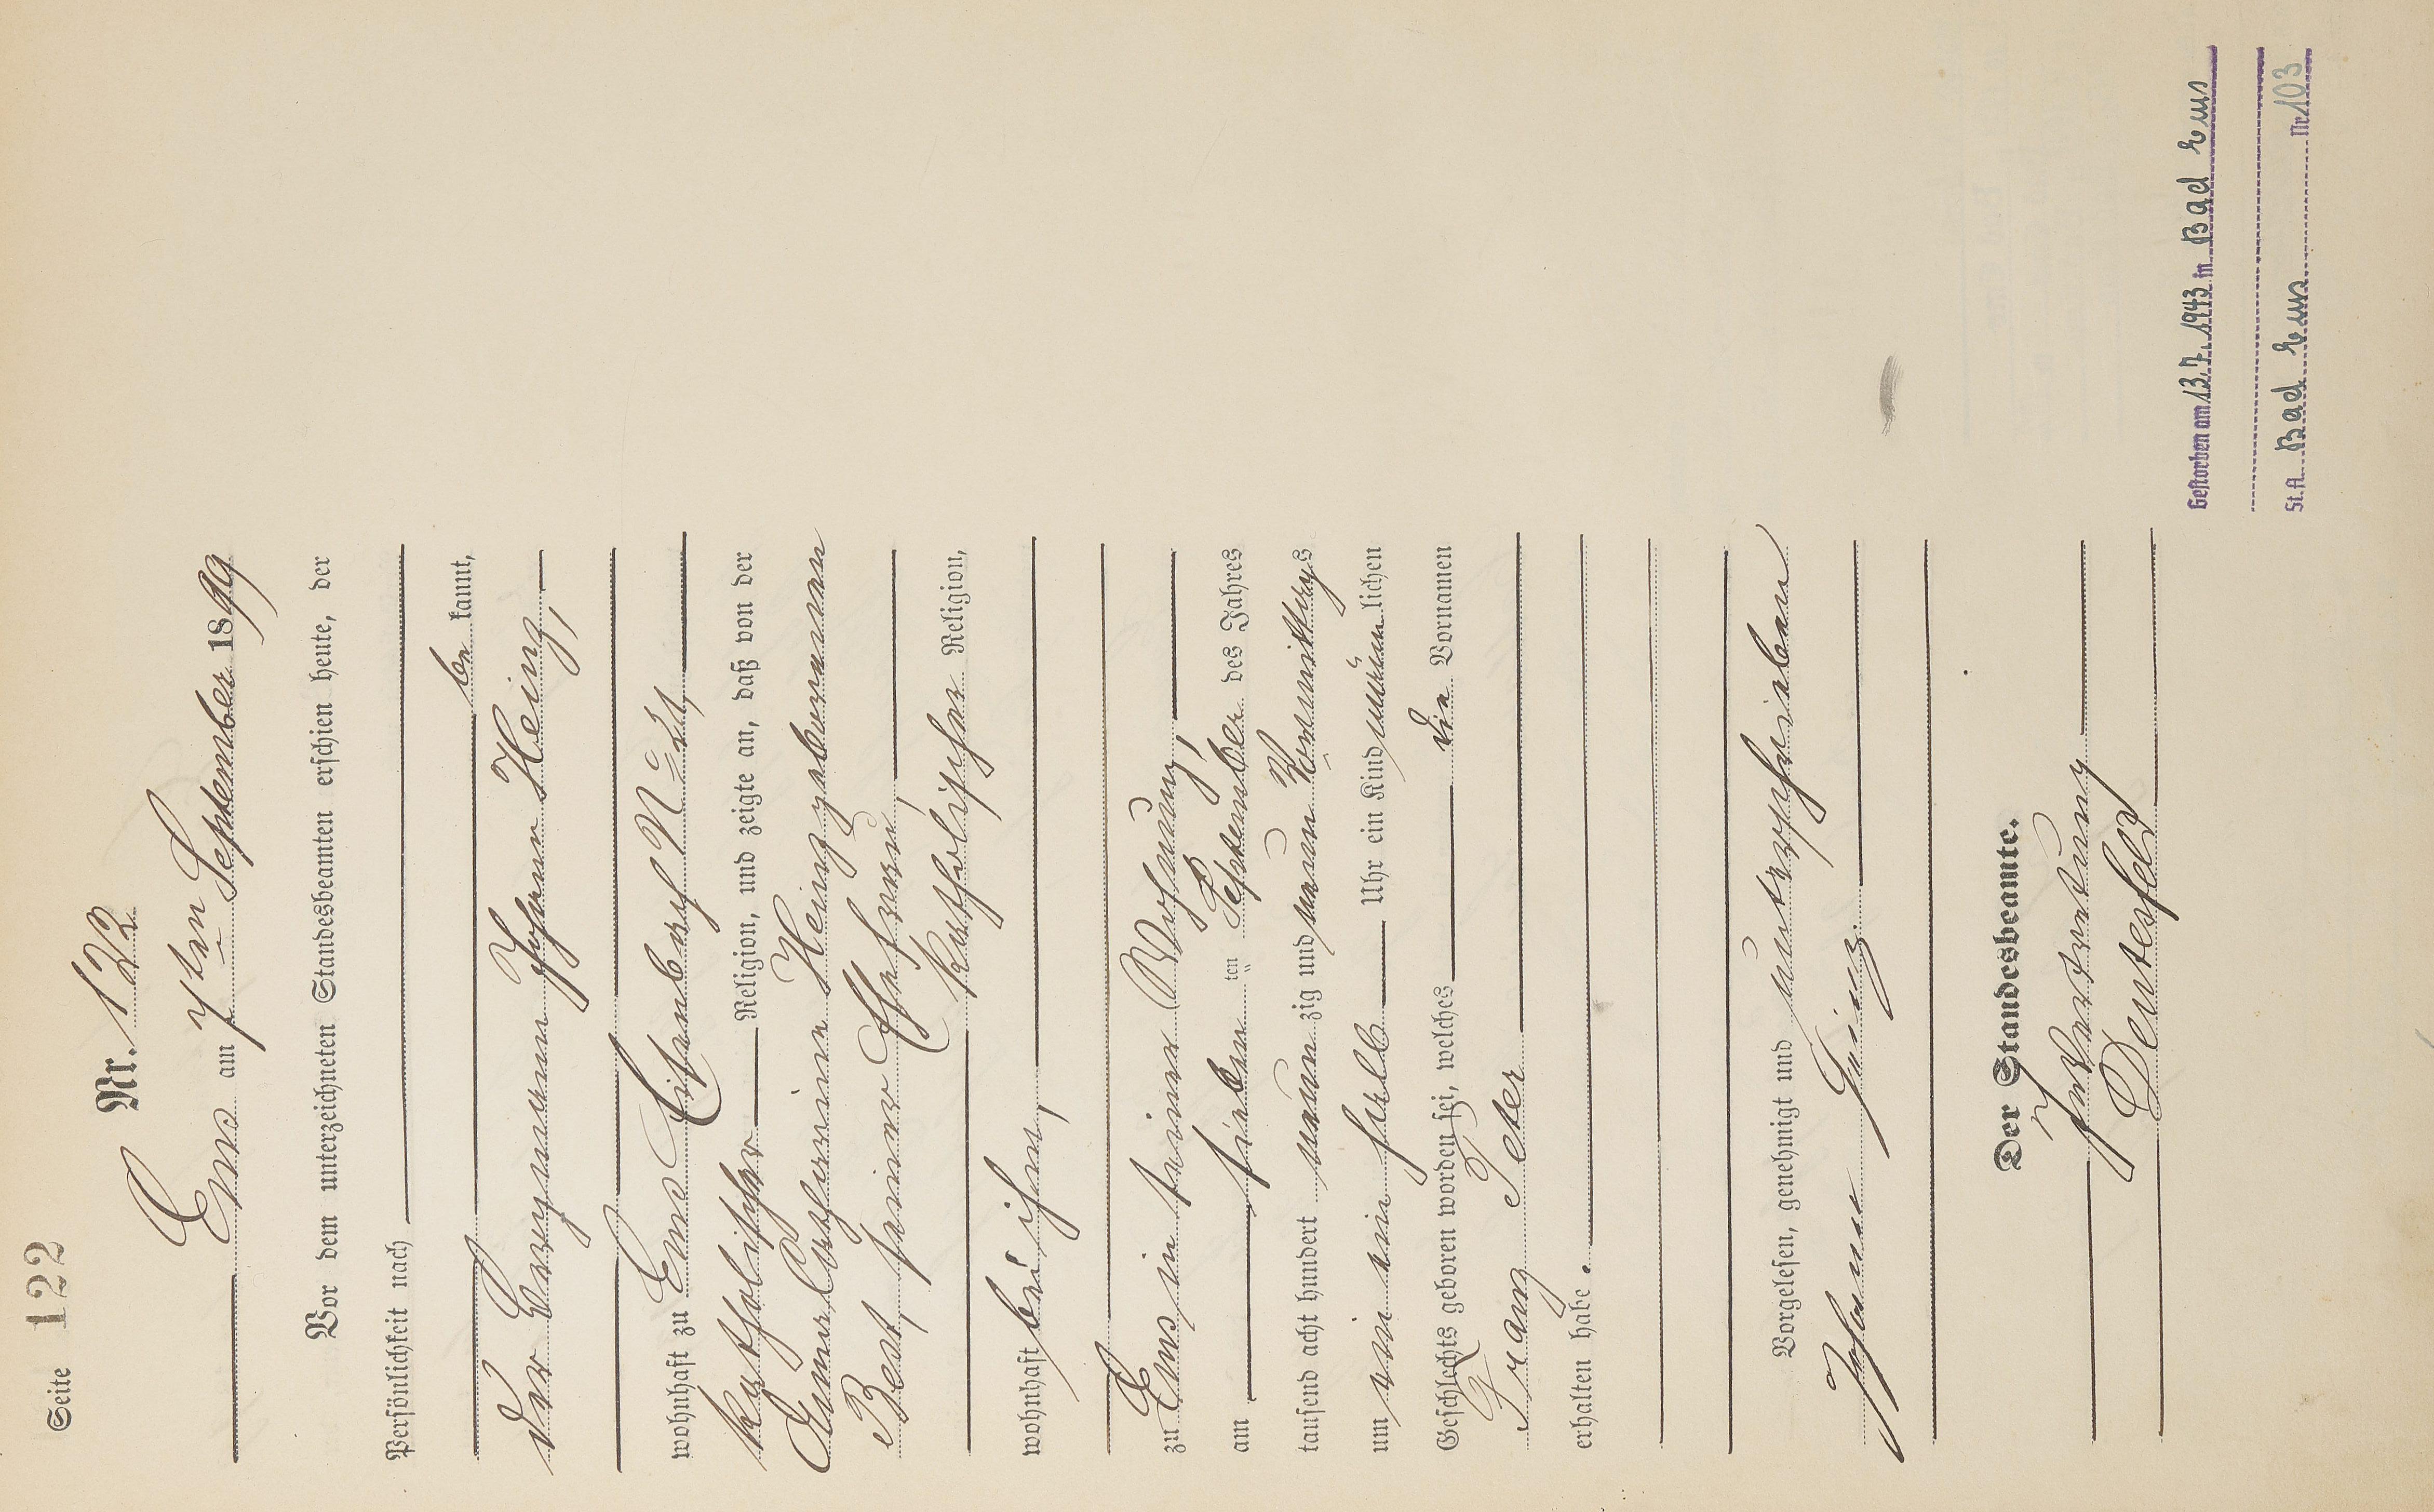 Seite 122
Nr. 122
Ems am 7ten September 1899
Vor dem unterzeichneten Standesbeamten erschien heute, der
Persönlichkeit nach
be kannt,
der Bergmann Johann Heinz,
wohnhaft zu Ems Eisenbach N° 21,
katholischer Religion, und zeigte an, daß von der
Anna Catharina Heinz geborenen
Best, seiner Ehefrau,
katholischer Religion,
wohnhaft bei ihm,
zu Ems in seiner Wohnung,
am sieben ten September des Jahres
tausend acht hundert neun zig und neun Vormittags
um ein halb Uhr ein Kind männ lichen
Geschlechts geboren worden sei, welches die Vornamen
Franz Peter
erhalten habe.
Vorgelesen, genehmigt und unterschrieben
Johann Heinz
Der Standesbeamte.
In Vertretung
Deutesfeld
Gestorben am 13.7.1943 in Bad Ems
St.A. Bad Ems Nr. 103